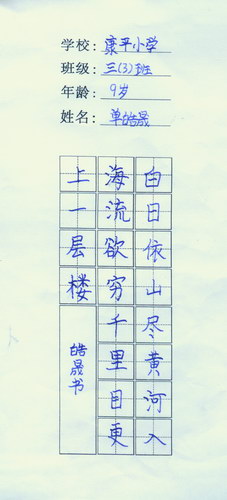 学校：康平小学
班级：三(3)班
年龄：9岁
姓名：单皓晟
白日依山尽黄河入
海流欲穷千里目更
上一层楼
皓晟书